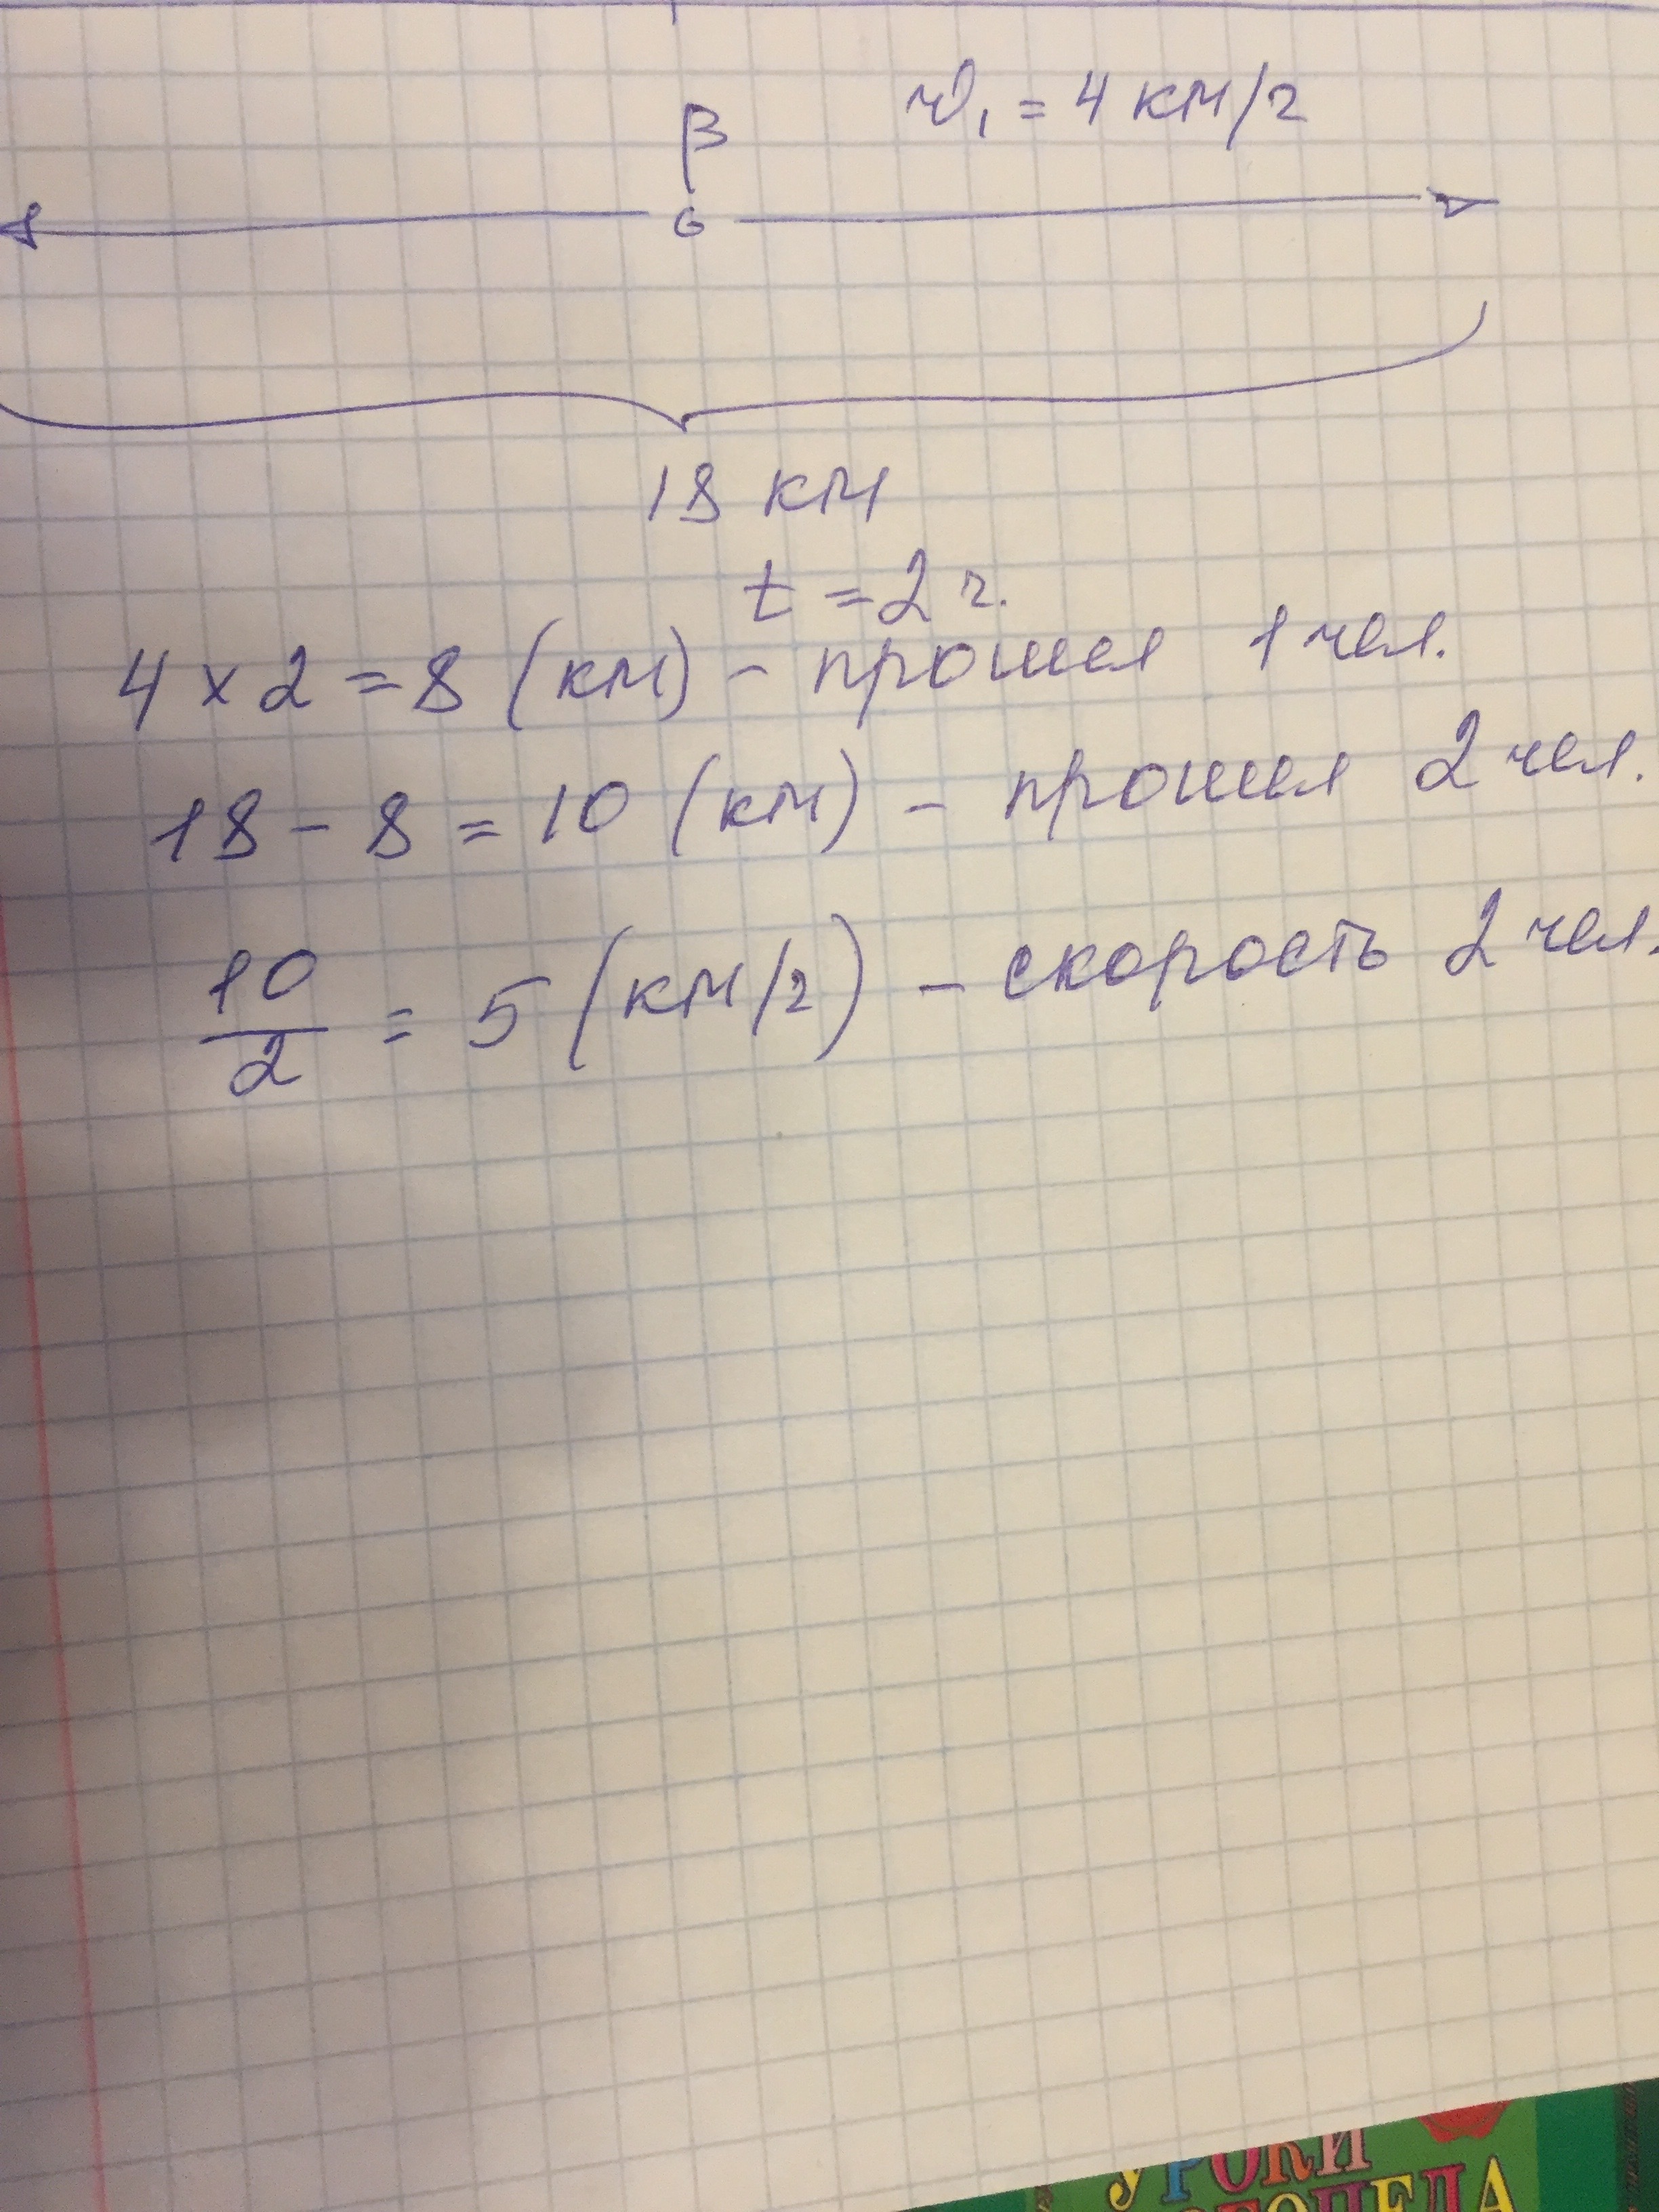 В
v₁ = 4 км/ч
18 км
t = 2 ч.
4 × 2 = 8 (км) - прошел 1 чел.
18 - 8 = 10 (км) - прошел 2 чел.
10/2 = 5 (км/ч) - скорость 2 чел.
УРОКИ